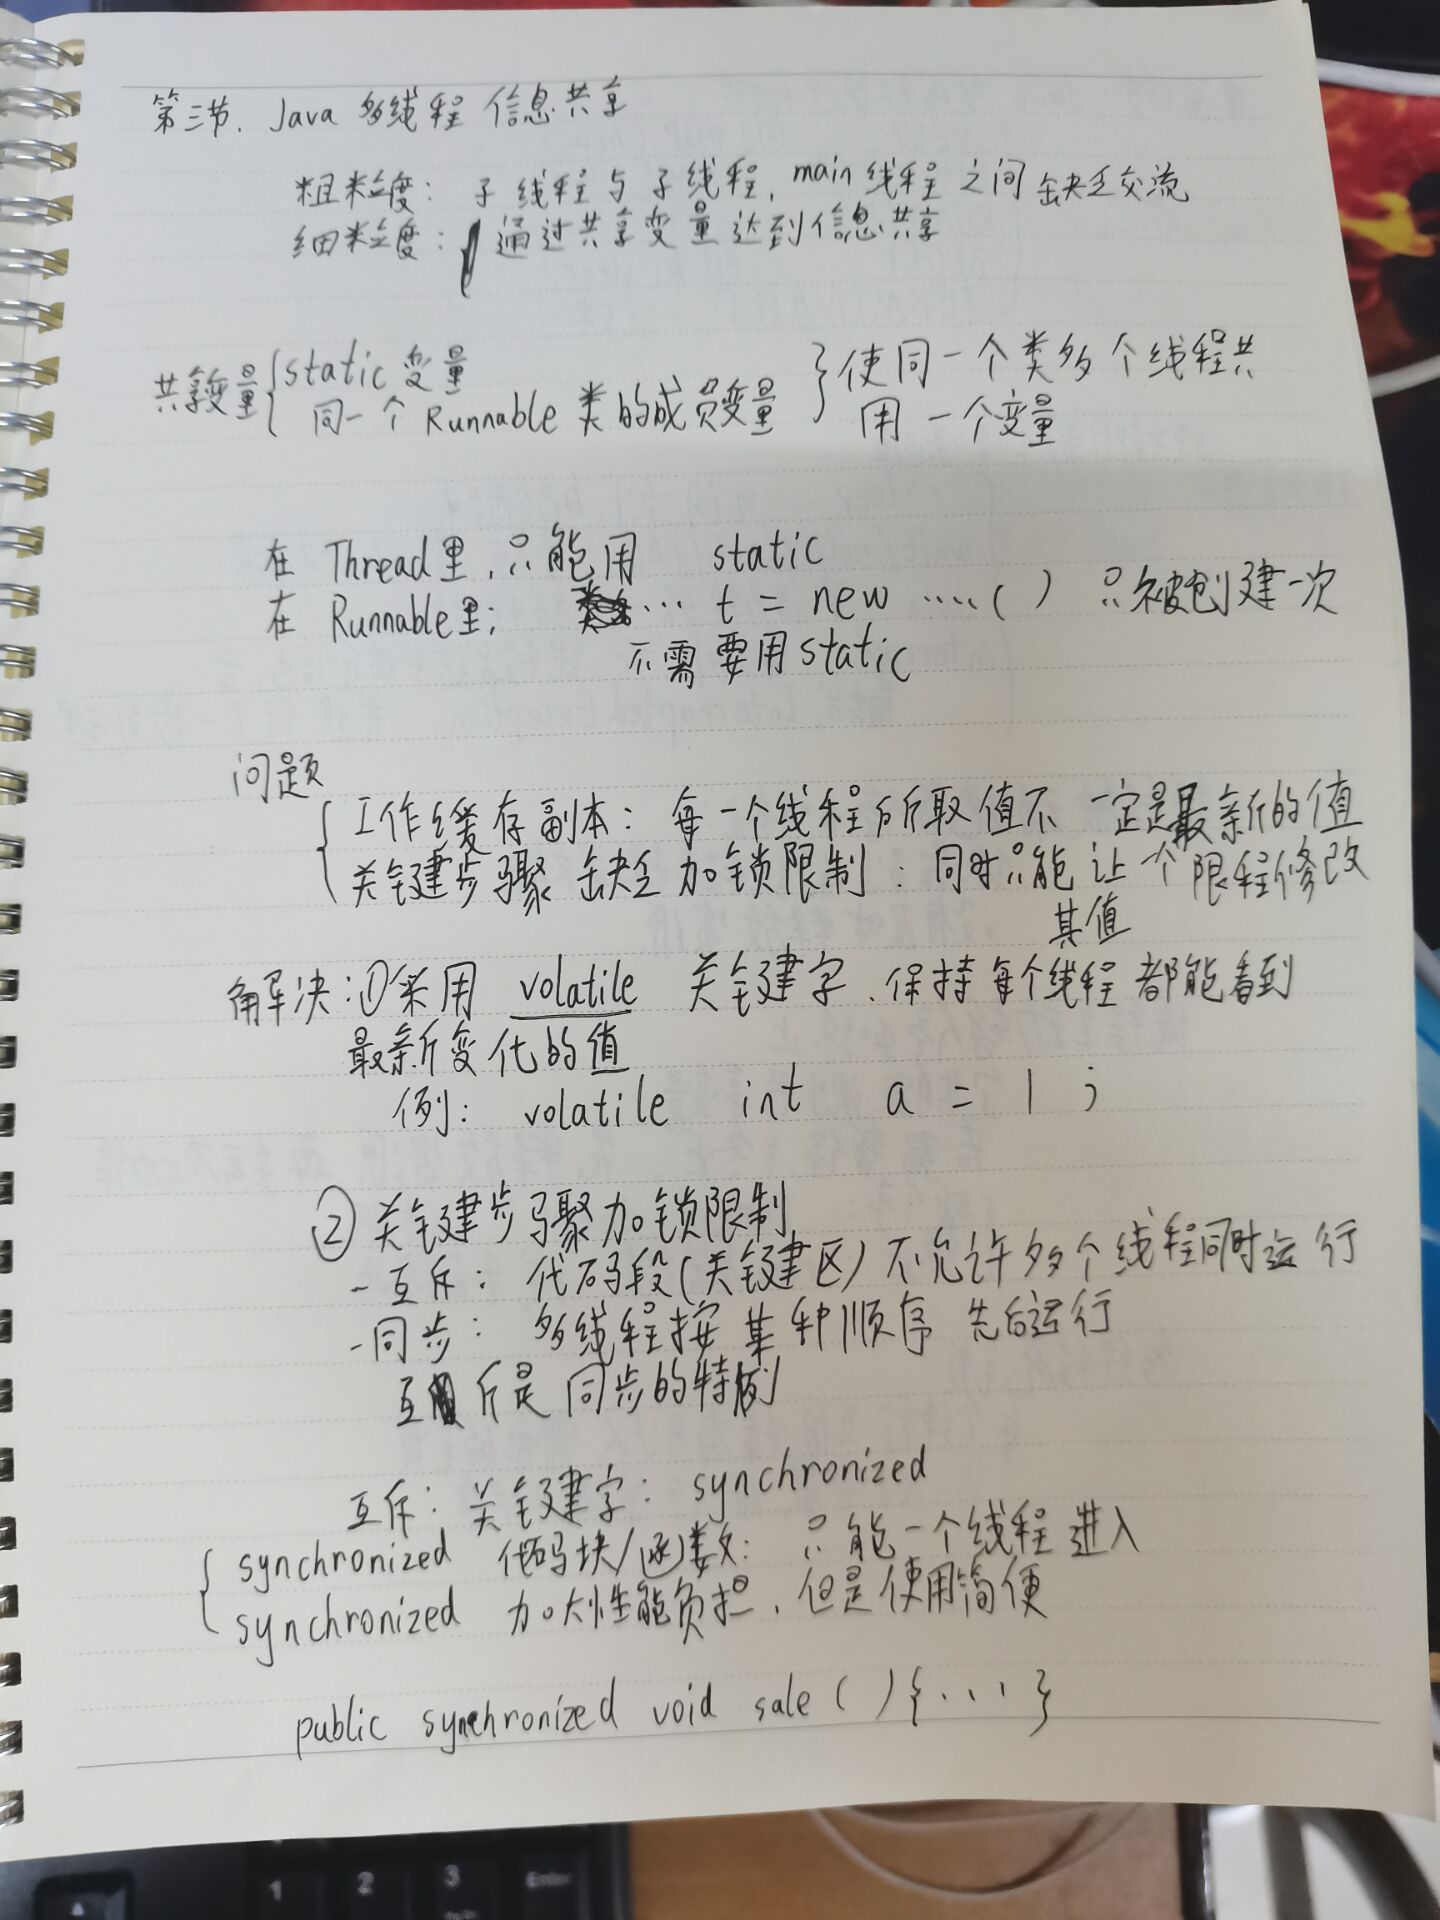 第三节. Java 多线程 信息共享
粗粒度: 子线程与子线程, main线程之间缺乏交流
细粒度: 通过共享变量达到信息共享
共享变量{static变量
同一个Runnable类的成员变量
}使同一个类多个线程共
用一个变量
在 Thread里, 只能用 static
在 Runnable里; ... t = new ....( ) 只被创建一次
不需要用static
问题
{工作缓存副本: 每一个线程所取值不一定是最新的值
关键步骤缺乏加锁限制: 同时只能让个限程修改
其值
解决:①采用 volatile 关键字、保持每个线程都能看到
最新变化的值
例: volatile int a = 1 ;
② 关键步骤加锁限制
-互斥: 代码段(关键区)不允许多个线程同时运行
-同步: 多线程按某种顺序先后运行
互斥是同步的特例
互斥: 关键字: synchronized
{synchronized 代码块/函数: 只能一个线程进入
synchronized 加大性能负担, 但是使用简便
public synchronized void sale ( ){...}
1 2 3 Enter